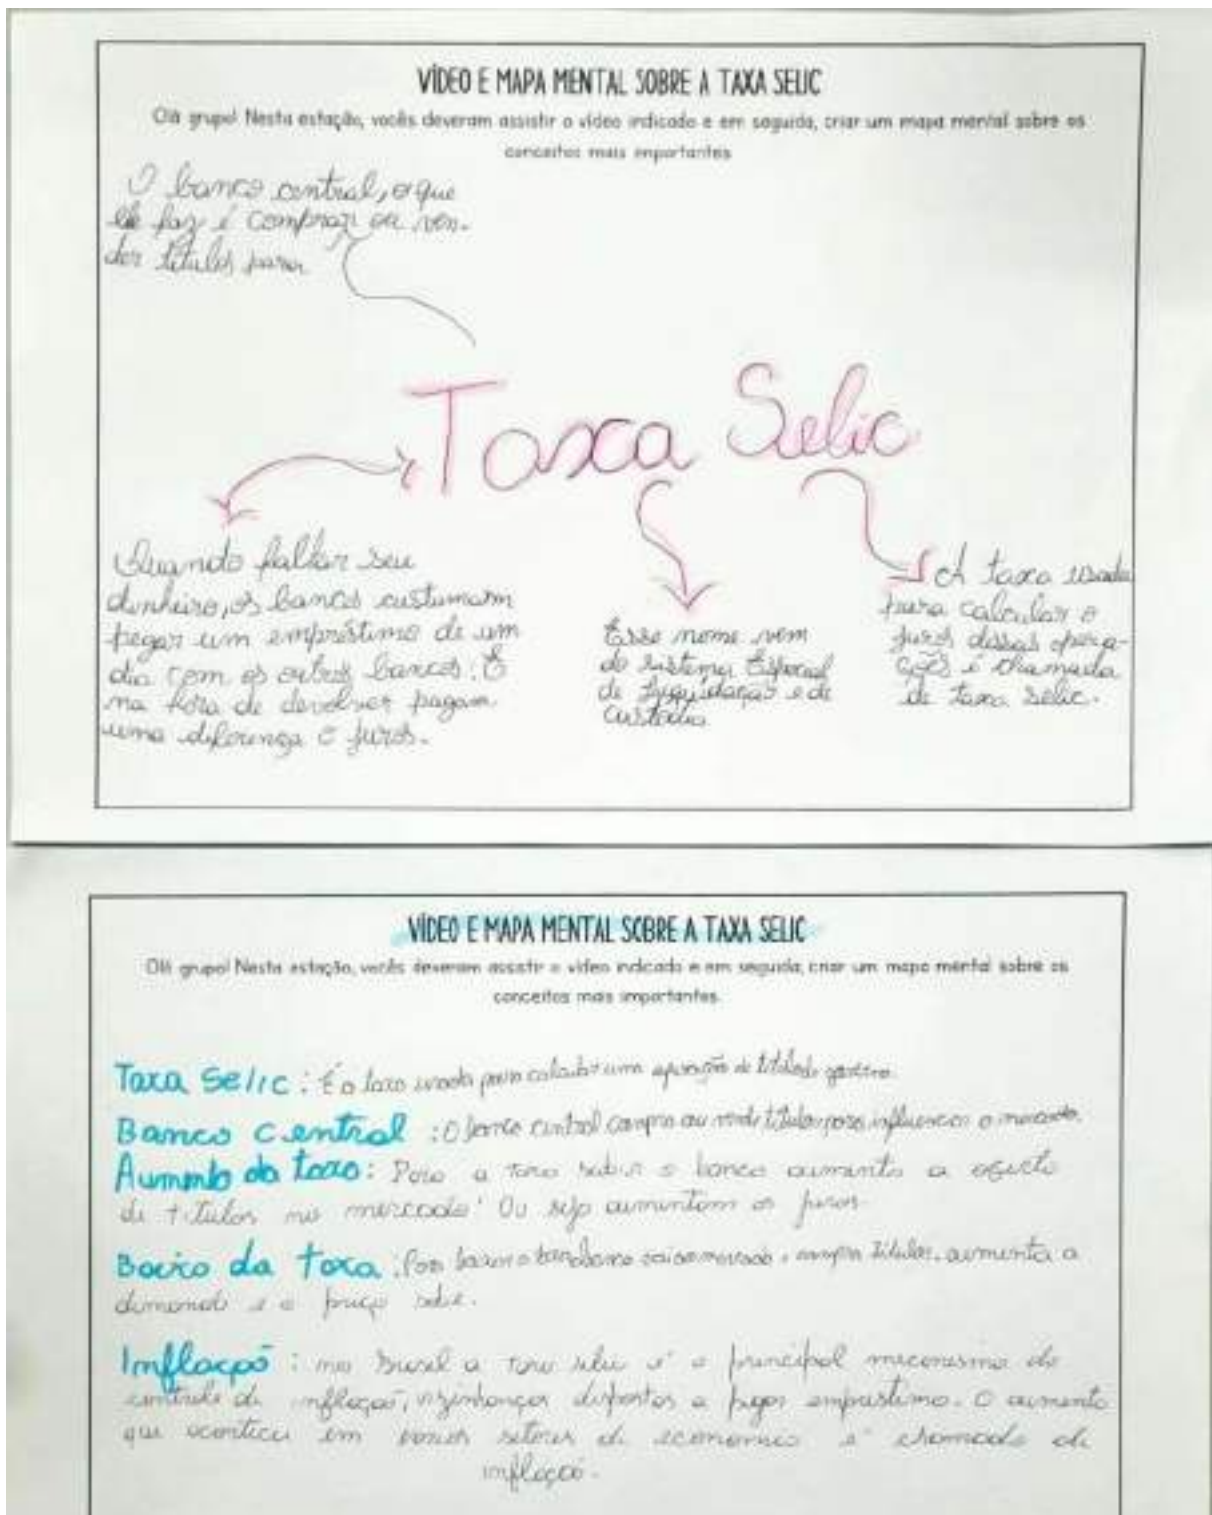 VÍDEO E MAPA MENTAL SOBRE A TAXA SELIC
Olá grupo! Nesta estação, vocês deveram assistir o vídeo indicado e em seguida, criar um mapa mental sobre os
conceitos mais importantes
O banco central, o que
ele faz é comprar ou ven-
der títulos para
Taxa Selic
Quando faltar seu
dinheiro, os bancos custumam
pegar um empréstimo de um
dia com os outros bancos. E
na hora de devolver pagam
uma diferença o juros.
Esse nome vem
do sistema Especial
de liquidação e de
custódia
A taxa usada
para calcular o
juros dessas opera-
ções é chamada
de taxa selic.
VÍDEO E MAPA MENTAL SOBRE A TAXA SELIC
Olá grupo! Nesta estação, vocês deveram assistir o vídeo indicado e em seguida, criar um mapa mental sobre os
conceitos mais importantes.
Taxa Selic: É a taxa usada para calcular uma operação de
Banco Central: O banco central compra ou vende títulos para influenciar o mercado.
Aumento da taxa: Para a taxa subir o banco aumenta a oferta
de títulos no mercado! Ou seja aumentam os juros.
Baixo da taxa: compra títulos, aumenta a
demanda e o preço sobe.
Inflaçaõ: no Brasil a taxa selic é o principal mecanismo de
controle de inflaçaõ, a pegar empréstimo. O aumento
que acontece em vários setores da economia é chamado de
inflaçaõ.